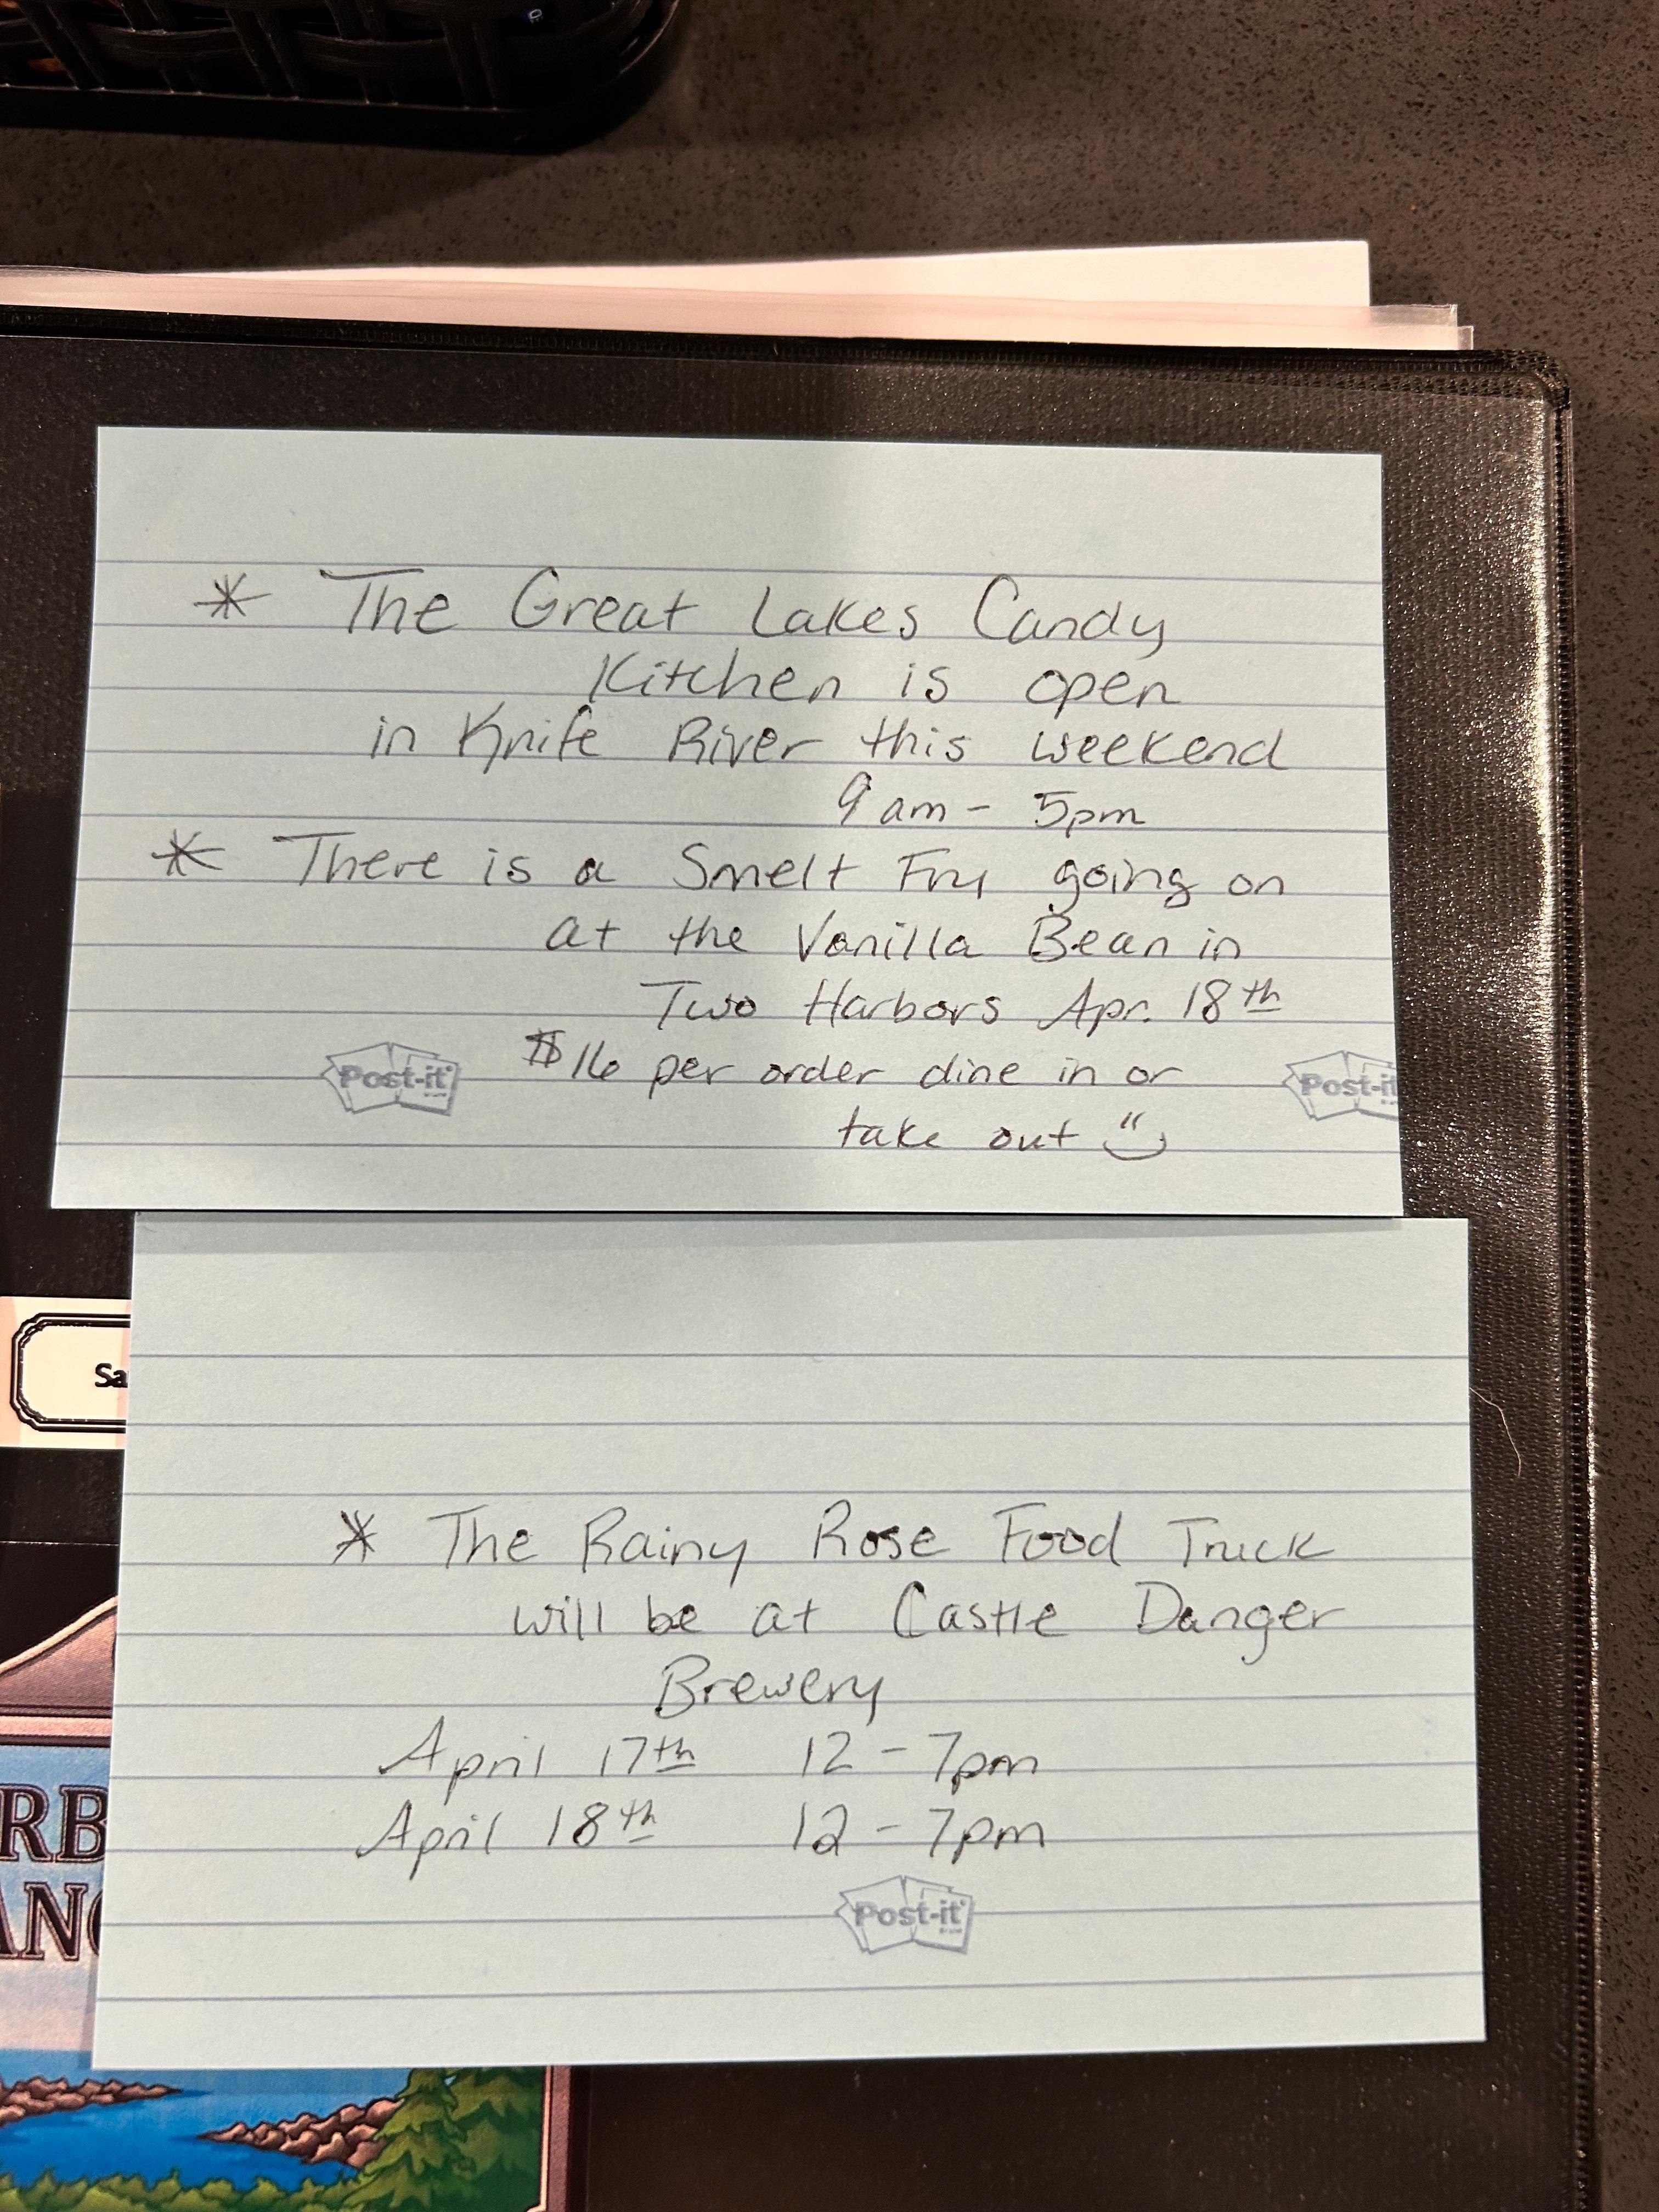 * The Great Lakes Candy
Kitchen is open
in Knife River this weekend
9am - 5pm
* There is a Smelt Fry going on
at the Vanilla Bean in
Two Harbors Apr. 18th
$16 per order dine in or
take out
Post-it
Post-it
Sa
* The Rainy Rose Food Truck
will be at Castle Danger
Brewery
April 17th 12 - 7pm
April 18th 12 - 7pm
Post-it
RB
AN